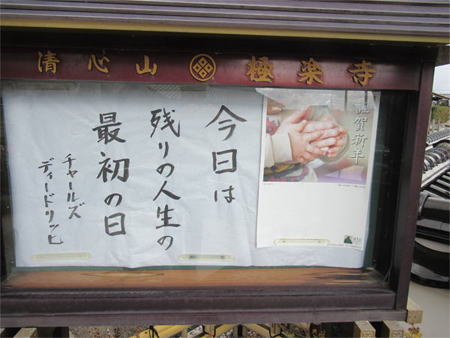 清心山 極楽寺
謹賀新年
今日は
残りの人生の
最初の日
チャールズ
ディードリッヒ